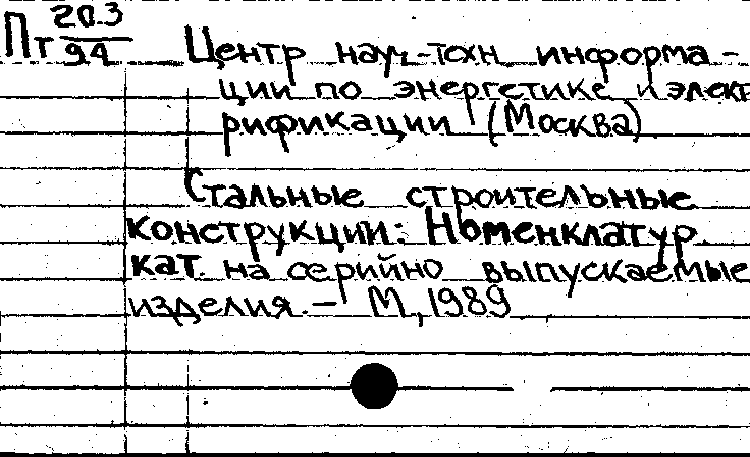 Пт 20.3
94
Центр науч-техн информа-
ции по энергетике и элект
рификации (Москва)
Стальные строительные
конструкции: Номенклатур.
кат. на серийно выпускаемые
изделия. – М, 1989